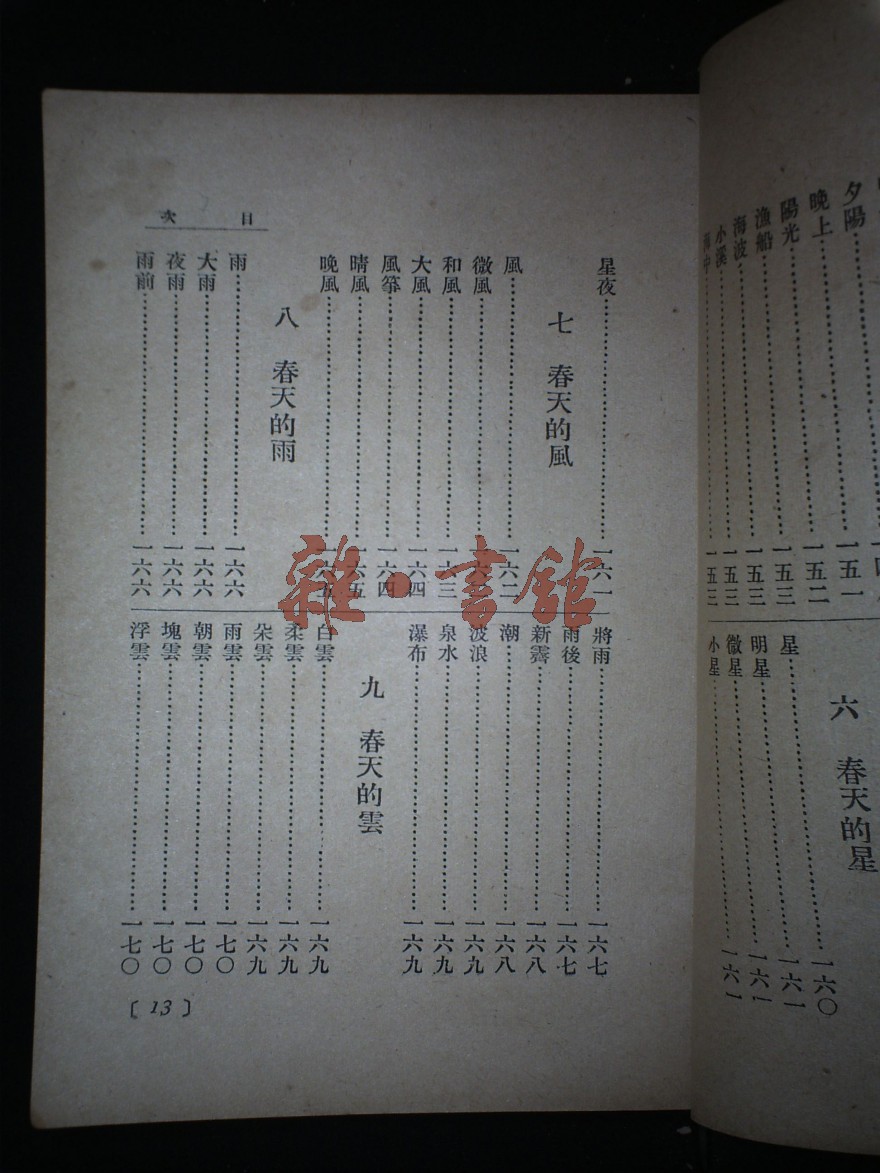 夕陽
晚上……一五一
陽光……一五二
漁船……一五三
海波……一五三
小溪……一五三
六 春天的星
星……一六〇
明星……一六一
微星……一六一
小星……一六一
目次
星夜……一六一
七 春天的風
風……一六二
微風……一六
和風……一六三
大風……一六四
風箏……一六四
晴風……一六五
晚風……一六五
八 春天的雨
雨……一六六
大雨……一六六
夜雨……一六六
雨前……一六六
將雨……一六七
雨後……一六七
新霽……一六八
潮……一六八
波浪……一六九
泉水……一六九
瀑布……一六九
九 春天的雲
白雲……一六九
柔雲……一六九
朵雲……一六九
雨雲……一七〇
朝雲……一七〇
塊雲……一七〇
浮雲……一七〇
〔13〕
雜·書館